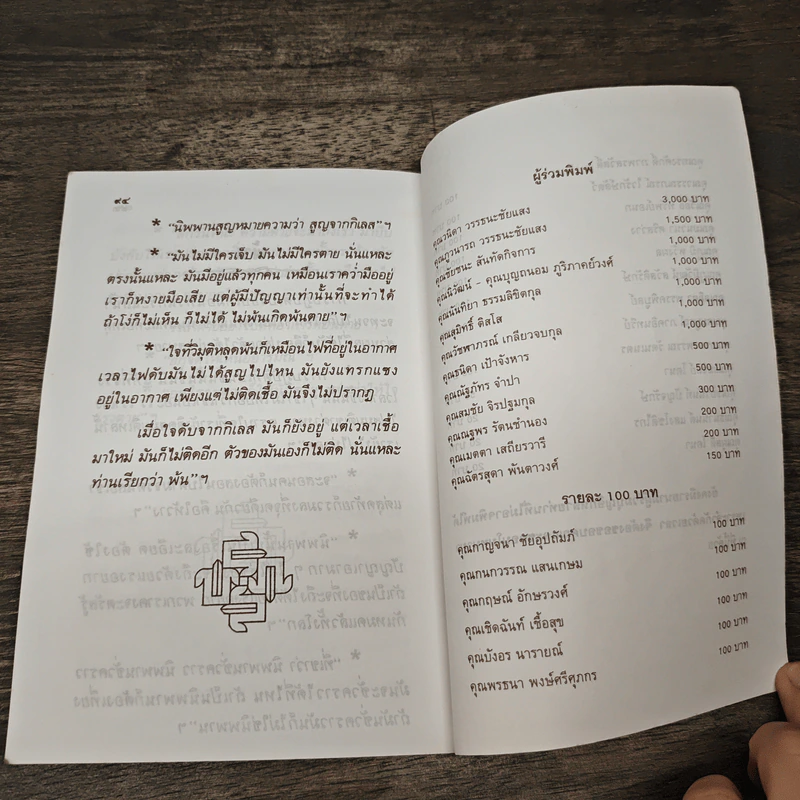 ๙๔
* "นิพพานสูญหมายความว่า สูญจากกิเลส"ฯ
* "มันไม่มีใครเจ็บ มันไม่มีใครตาย นั่นแหละ
ตรงนั้นแหละ มันมีอยู่แล้วทุกคน เหมือนเราคว่ำมืออยู่
เราก็หงายมือเสีย แต่ผู้มีปัญญาเท่านั้นที่จะทำได้
ถ้าโง่ก็ไม่เห็น ก็ไม่ได้ ไม่พ้นเกิดพ้นตาย"ฯ
* "ใจที่วิมุติหลุดพ้นก็เหมือนไฟที่อยู่ในอากาศ
เวลาไฟดับมันไม่ได้สูญไปไหน มันยังแทรกแซง
อยู่ในอากาศ เพียงแต่ไม่ติดเชื้อ มันจึงไม่ปรากฏ
เมื่อใจดับจากกิเลส มันก็ยังอยู่ แต่เวลาเชื้อ
มาใหม่ มันก็ไม่ติดอีก ตัวของมันเองก็ไม่ติด นั่นแหละ
ท่านเรียกว่า พ้น"ฯ
ผู้ร่วมพิมพ์
คุณวนิดา วรรธนะชัยแสง 3,000 บาท
คุณภูวนารถ วรรธนะชัยแสง 1,500 บาท
คุณชัยชนะ สันทัดกิจการ 1,000 บาท
คุณนิวัฒน์ - คุณบุญถนอม ภูริภาคย์วงศ์ 1,000 บาท
คุณนันทิยา ธรรมลิขิตกุล 1,000 บาท
คุณสุมิทธิ์ ดิสโส 1,000 บาท
คุณวัชพาภรณ์ เกลียวจบกุล 1,000 บาท
คุณธนิดา เป้าจังหาร 500 บาท
คุณณัฐภัทร จำปา 500 บาท
คุณสมชัย จิรปฐมกุล 300 บาท
คุณณฐพร รัตนชำนอง 200 บาท
คุณเมดตา เสถียรวารี 200 บาท
คุณฉัตรสุดา พันดาวงศ์ 150 บาท
รายละ 100 บาท
คุณกาญจนา ชัยอุปถัมภ์ 100 บาท
คุณกนกวรรณ แสนเกษม 100 บาท
คุณกฤษณ์ อักษรวงศ์ 100 บาท
คุณเชิดฉันท์ เชื้อสุข 100 บาท
คุณบังอร นารายณ์ 100 บาท
คุณพรธนา พงษ์ศรีศุภกร 100 บาท